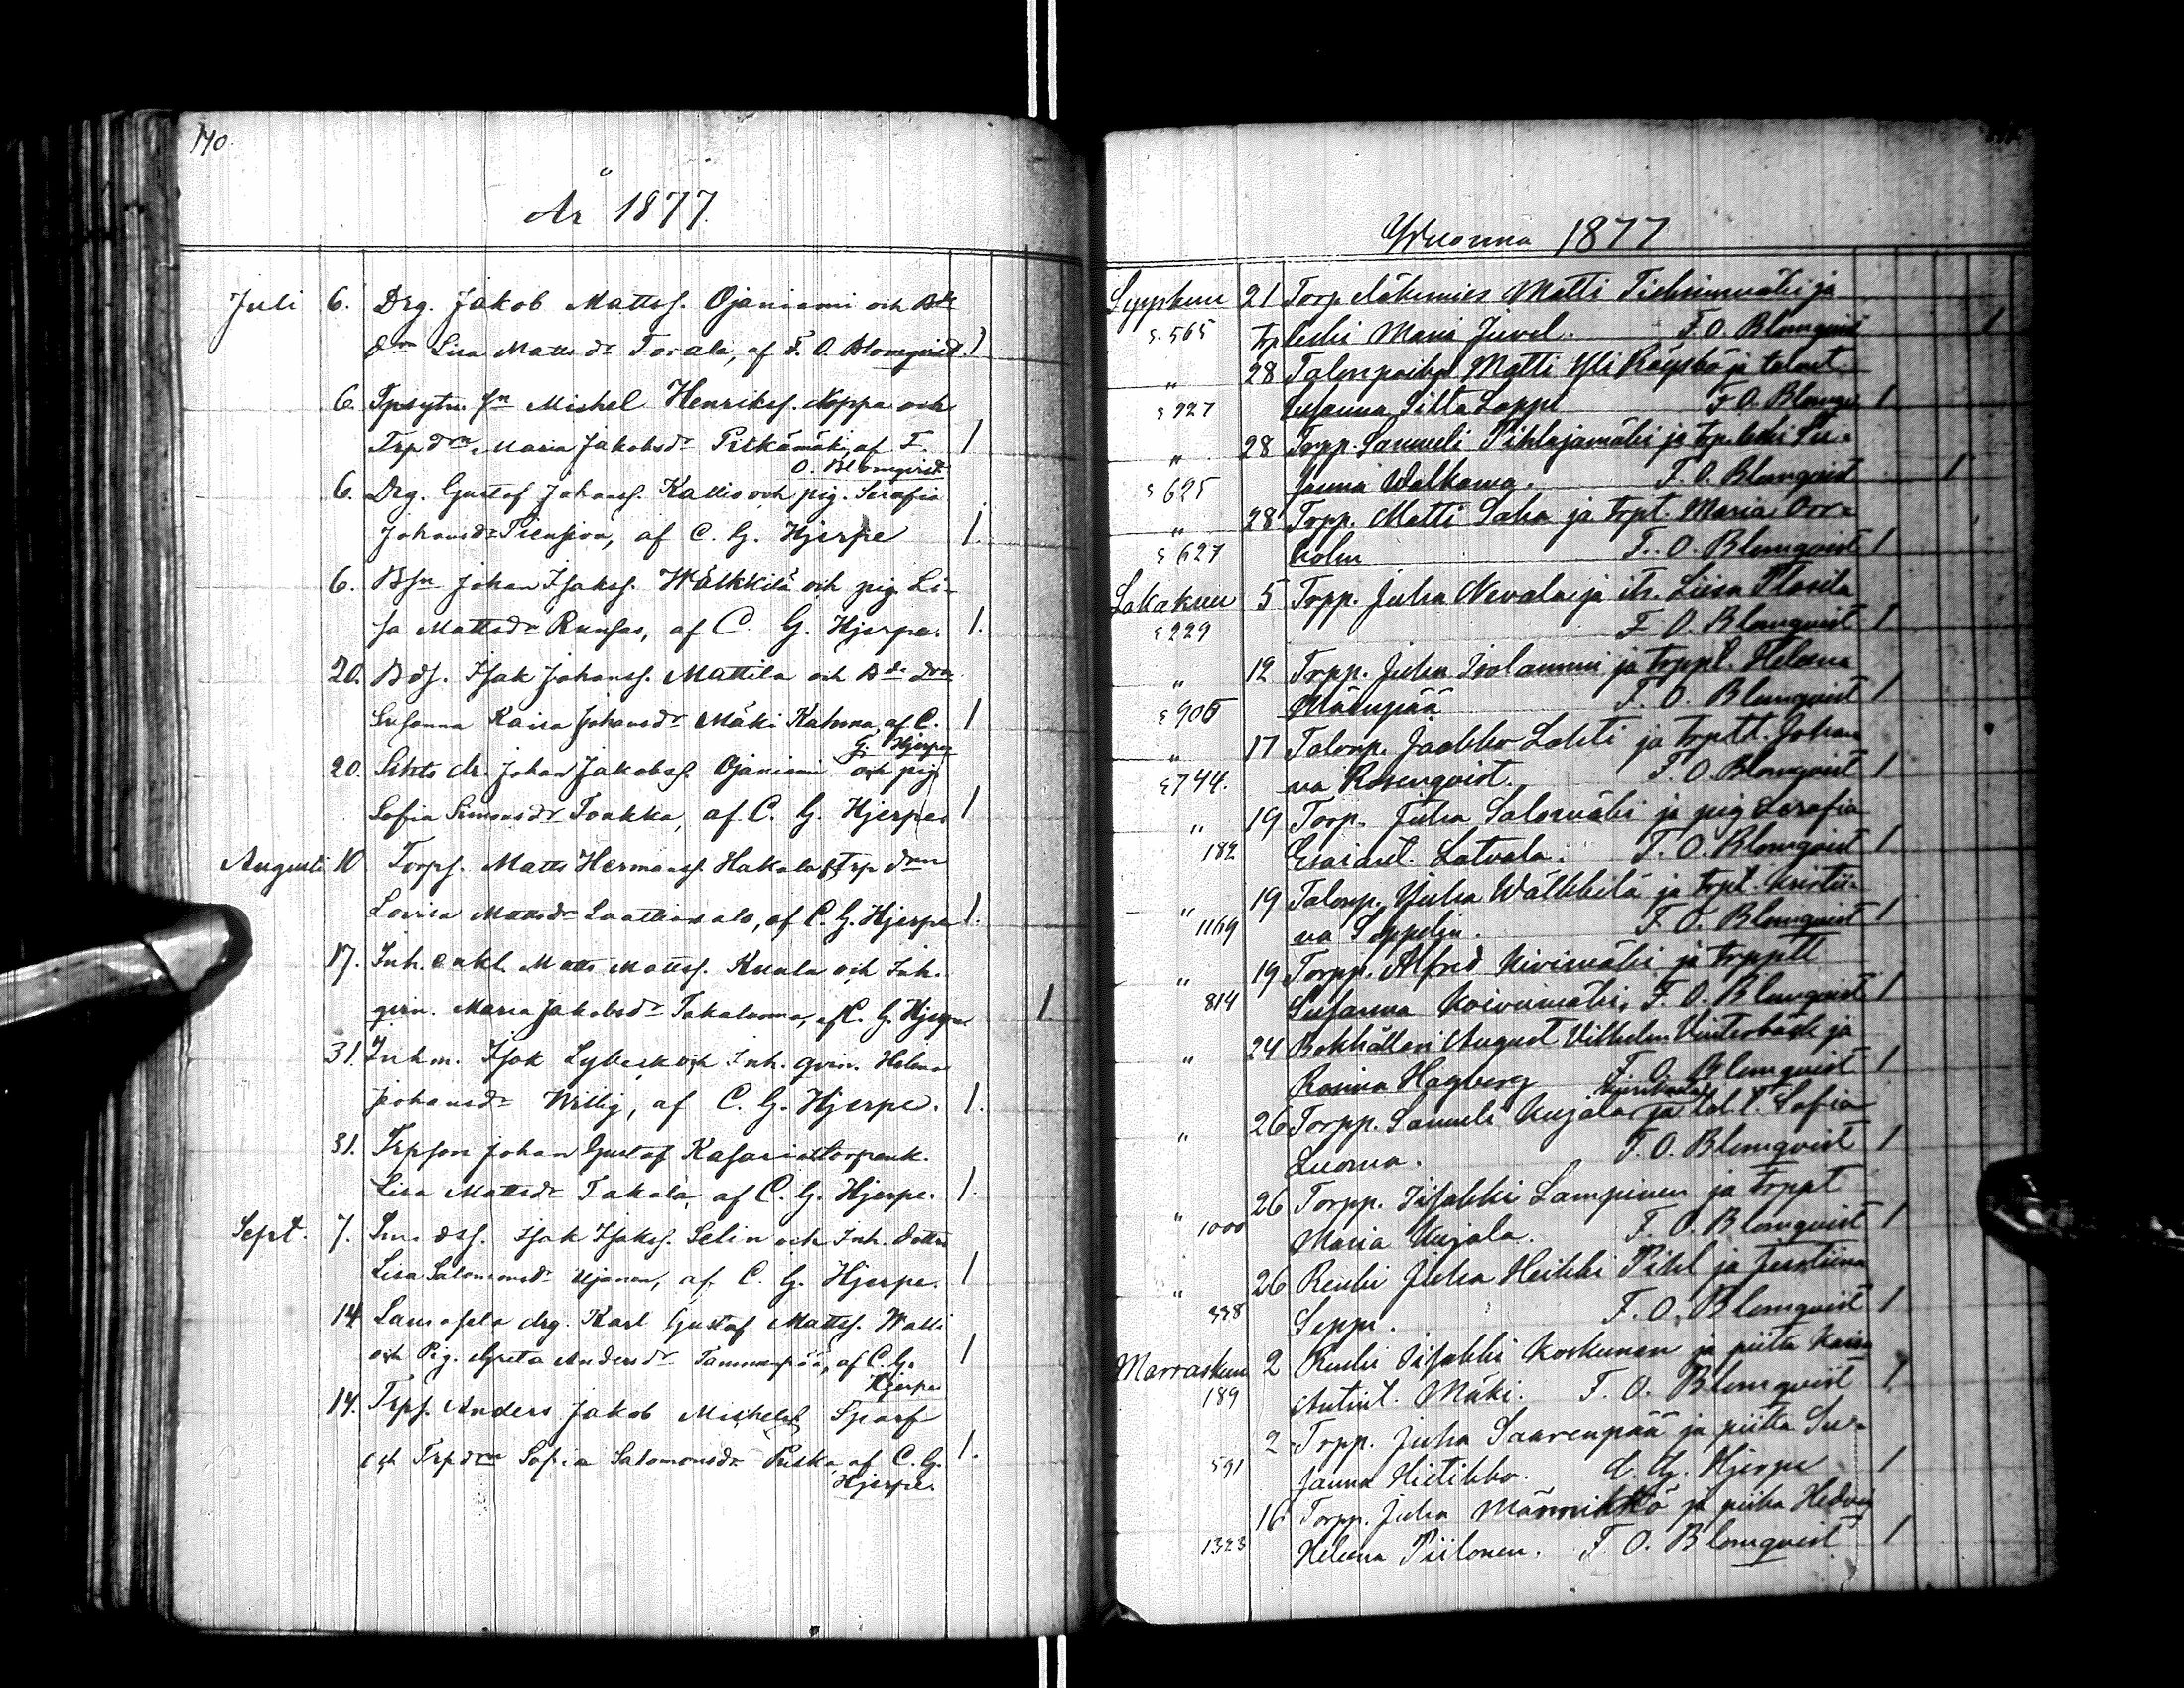 170.
År 1877.
Juli 6. Drg. Jakob Mattss. Ojaniemi och Bde
drn Lisa Mattsdr Torala, af F. O. Blomqvist. 1
6. Tpsytn. sn Mickel Henrikss. Noppa och
Trpdrn Maria Jakobsdr Pitkämäki, af F. 1
O. Blomqvist
6. Drg. Gustaf Johanss. Kallio och pig. Serafia
Johansdr, af C. G. Hjerpe 1.
6. Bsn Johan Isakss. Wälkkilä och pig. Li-
sa Mattsdr Runsas, af C. G. Hjerpe. 1.
20. Bds. Isak Johanss. Mattila och Bde drn
Susanna Kaisa Johansdr Mäki Kahma, af C. 1
G. Hjerpe
20. dr. Johan Jakobss. Ojaniemi och pig.
Sofia Simonsdr Toakka, af C. G. Hjerpe 1
Augusti 10 Torps. Matts Hermanss. Hakala & Trp drn
Lovisa Mattsdr, af C. G. Hjerpe 1.
17. Inh. enkl. Matts Mattss. Kuula och Inh.
qvin. Maria Jakobsdr Takaluoma, af C. G. Hjerpe 1.
31. Inhm. Isak Lybeck och Inh. qvin. Helena
Johansdr Willig, af C. G. Hjerpe. 1.
31. Trpson Johan Gustaf Kasari & torpenk.
Lisa Mattsdr Takala, af C. G. Hjerpe. 1.
Sept. 7. Isak Isakss. Selin och Inh. dottr
Lisa Salomonsdr Ujanen, af C. G. Hjerpe. 1
14 drg. Karl Gustaf Mattss. Walli
och Pig. Greta Andersdr Tammenpää, af C. G. 1
Hjerpe
14. Trps. Anders Jakob Michelss. Sparf
och Trpdrn Sofia Salomonsdr Puska, af C. G. 1.
Hjerpe.
Wuonna 1877
Syyskuu 21 Torp. Matti ja
s. 565 Trp leski Maria Juvel. F. O. Blomqvist 1
" 28 Talonpoika Matti Yli Röyskö ja talont.
s 927 Susanna Loppi F. O. Blomqv 1
" 28 Torpp. Samueli Pihlajamäki ja trp. leski Su-
s 625 sanna Walkama. F. O. Blomqvist 1
" 28 Torpp. Matti Saha ja trpt. Maria Orra
s 627 holm F. O. Blomqvist 1
Lokakuu 5 Torpp. Juha Nevala ja its. Liisa
s 229 F. O. Blomqvist 1
" 12 Torpp. Juha Isolammi ja trppt. Helena
s 905 Mäenpää F. O. Blomqvist 1
" 17 Talonp. Jaakko Lahti ja trptt. Johan
s 744. na Rosenqvist. F. O. Blomqvist 1
" 19 Torp. Juha Salomäki ja pig Serafia
182 Esaiant. Latvala. F. O. Blomqvist 1
" 19 Talonp. Juha Wälkkilä ja trpt. Kristii-
1169 na Seppelin. F. O. Blomqvist 1
" 19 Torpp. Alfred Kivimäki ja trpptt
814 Susanna Koivumäki. F. O. Blomqvist 1
" 24 Bokhållari August Vilhelm Vinterbäck ja
Rosina Hagberg F. O. Blomqvist 1
" 26 Torpp. Samueli Kujala ja tal. t. Sofia
Luoma. F. O. Blomqvist 1
" 26 Torpp. Iisakki Lampinen ja trppt
1000 Maria Kujala. F. O. Blomqvist 1
" 26 Renki Juha Heikki Pihl ja Justiina
338 Seppi. F. O. Blomqvist 1
Marraskuu 2 Renki Iisakki Koskunen ja piika Kaisa
189 Antint. Mäki. F. O. Blomqvist 1
2 Torpp. Juha Saarenpää ja piika Su-
591 sanna Hietikko. C. G. Hjerpe 1
16 Torpp. Juha Männikkö ja piika Hedvig
1323 Helena Piilonen. F. O. Blomqvist 1